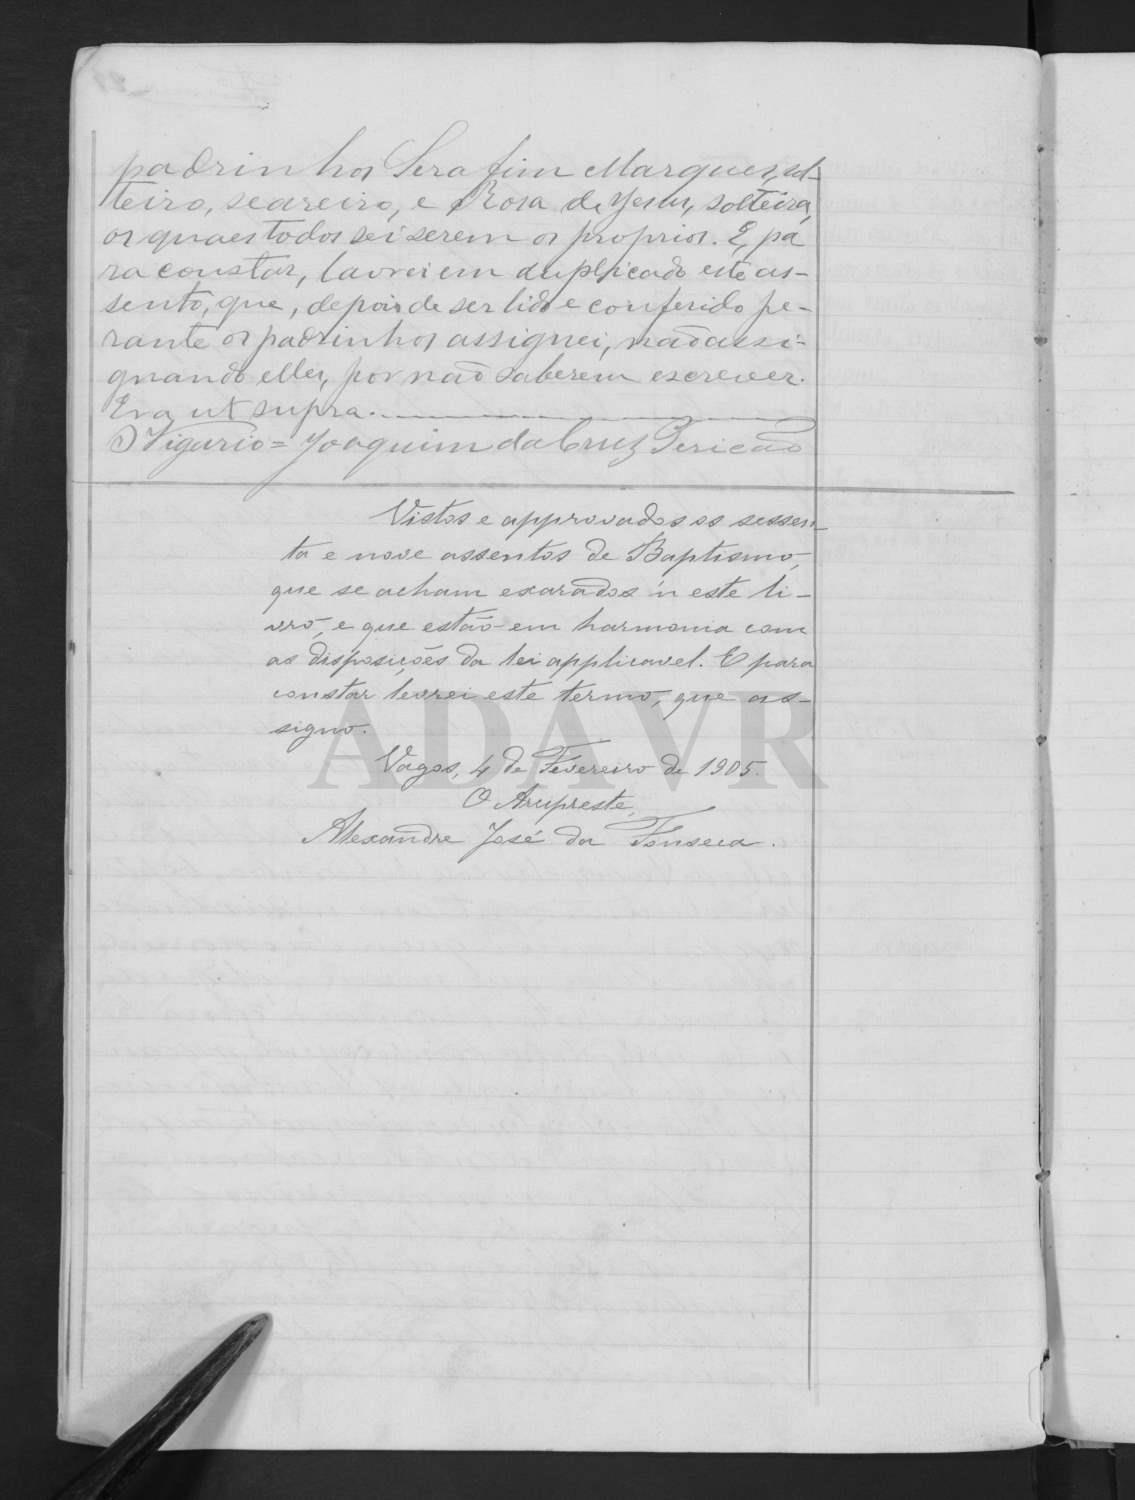 padrinhos Serafim Marques, sol-
teiro, seareiro, e Rosa de Jesus, solteira,
os quaes todos sei serem os proprios. E, pa
ra constar, lavrei em duplicado este as-
sento, que, depois de ser lido e conferido pe-
rante os padrinhos assignei, não assi-
gnando elles, por não saberem escrever.
Era ut supra.
O Vigario = Joaquim da Cruz Pericão
Vistos e approvados os sessen-
ta e nove assentos de Baptismo,
que se acham exarados n'este li-
vro, e que estão em harmonia com
as disposições da lei applicavel. E para
constar lavrei este termo, que as-
signo.
ADAVR
Vagos, 4 de Fevereiro de 1905.
O Arcipreste,
Alexandre José da Fonseca.